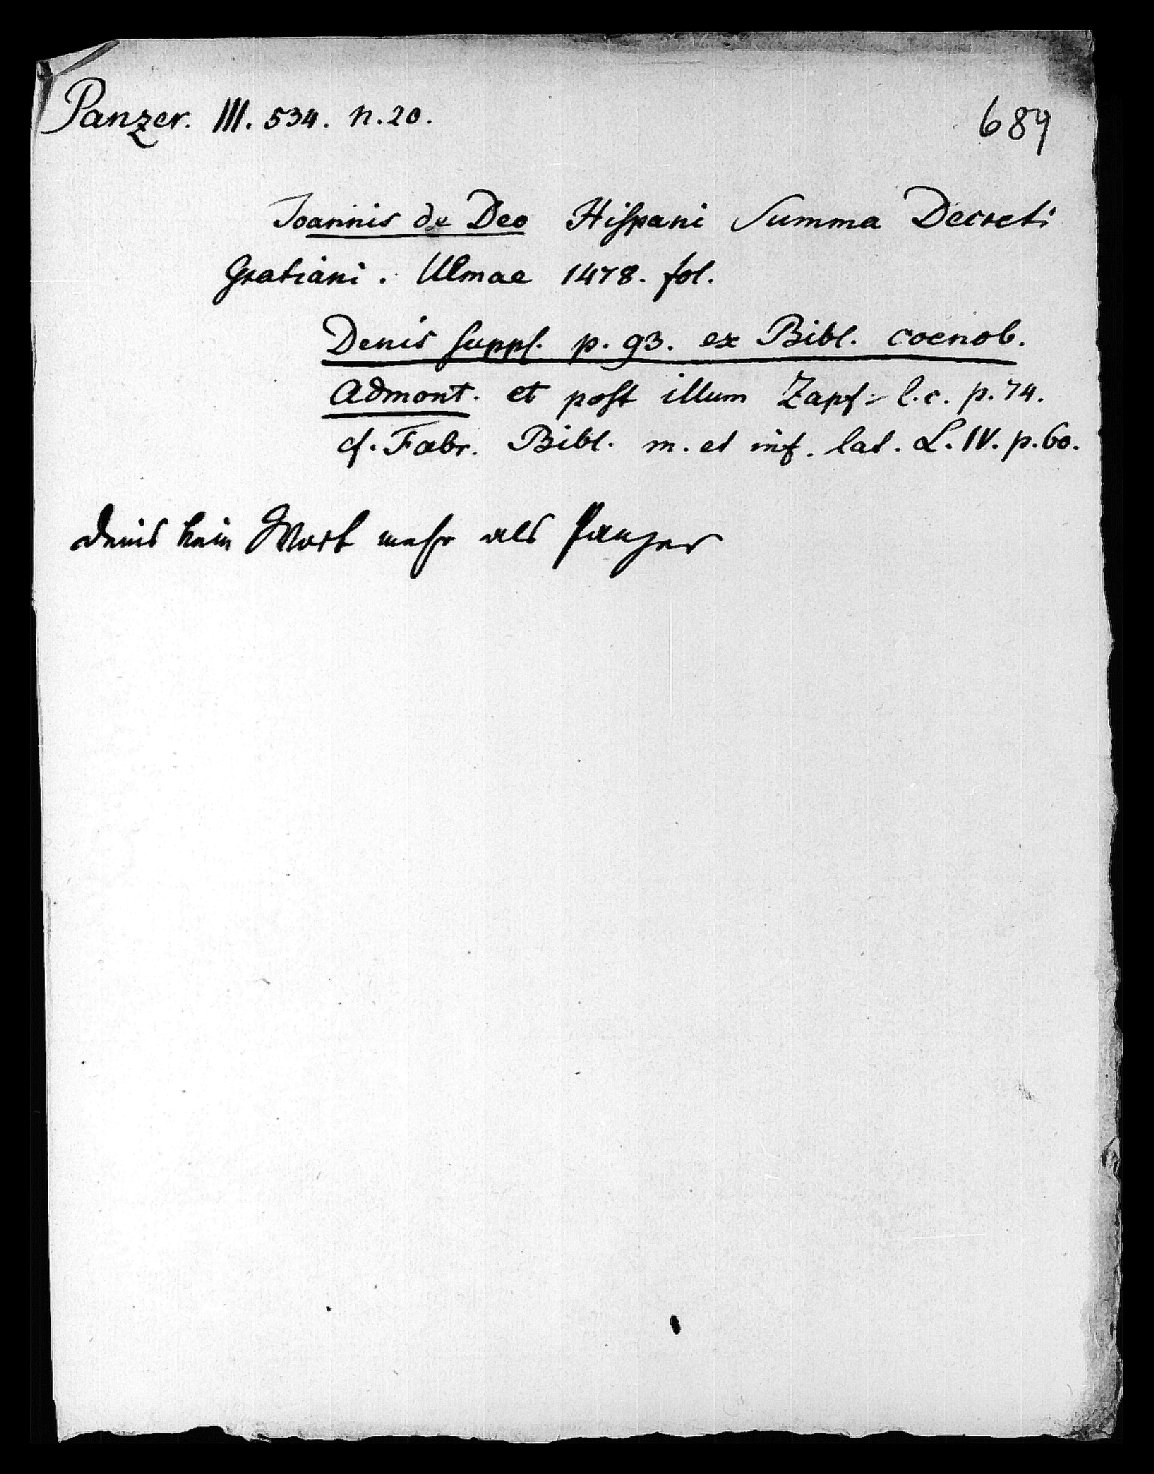 Panzer. III. 534. n. 20.
689
Joannis de Deo Hispani Summa Decreti
Gratiani. Ulmae 1478. fol.
Denis suppl. p. 93. ex Bibl. coenob.
Admont. et post illum Zapf l.c. p. 74.
cf. Fabr. Bibl. m. et inf. lat. L. IV. p. 60.
Denis kein Wort mehr als Panzer